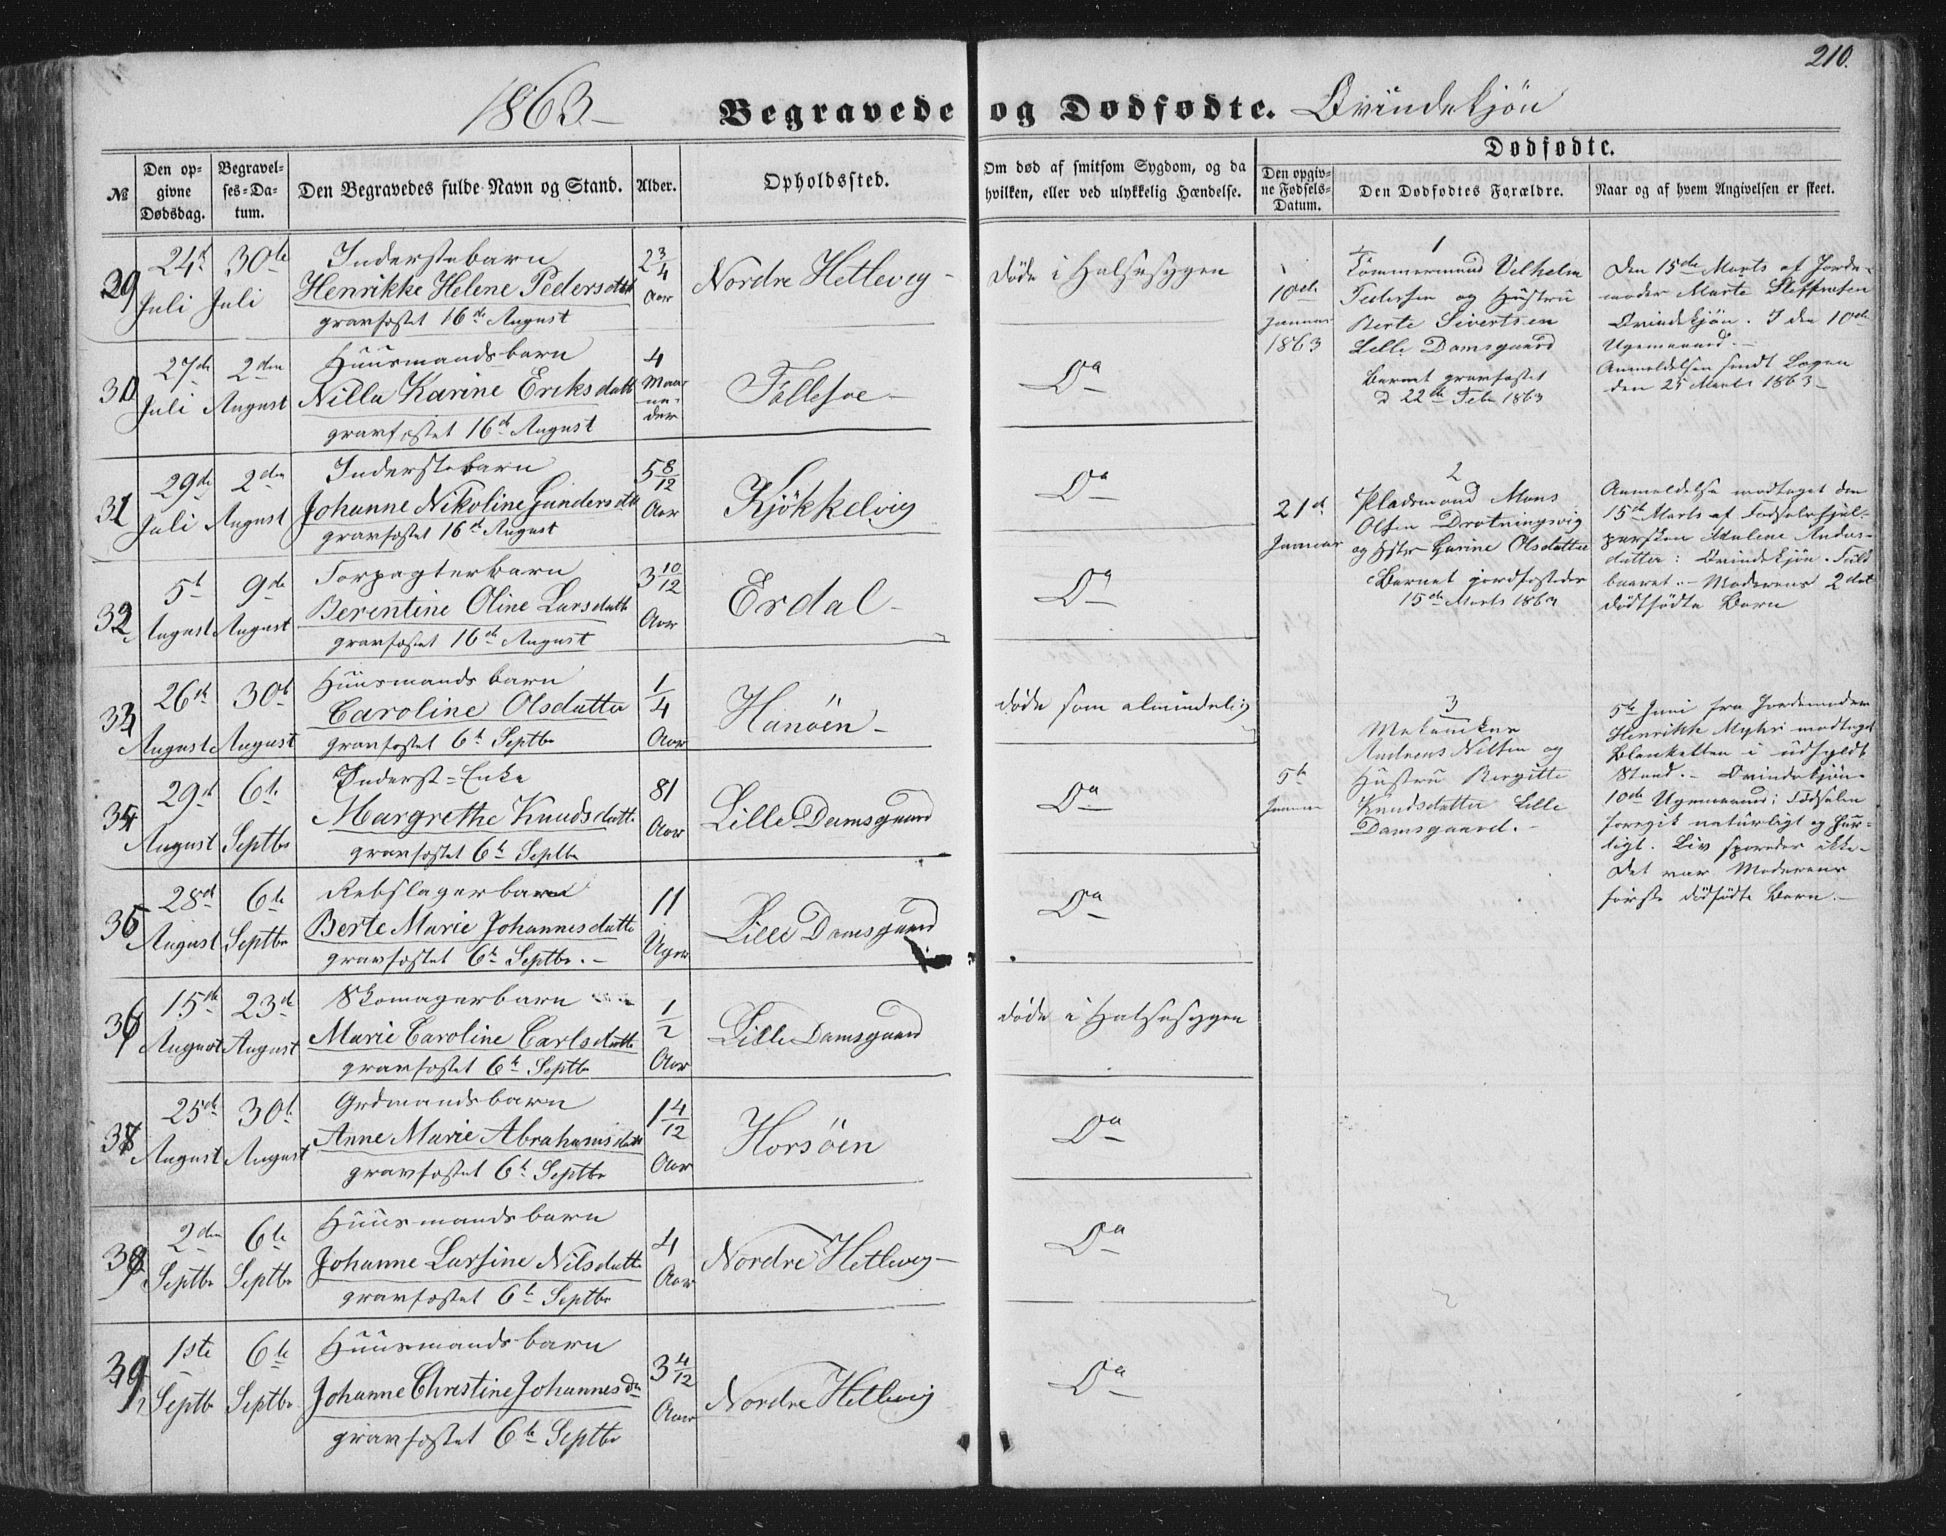 210.
1863 Begravede og Dødfødte. Qvindekjøn
№
Den opgivne Dødsdag.
Begravelses-Datum.
Den Begravedes fulde Navn og Stand.
Alder.
Opholdssted.
Om død af smitsom Sygdom, og da hvilken, eller ved ulykkelig Hændelse.
Dødfødte.
Den opgivne Fødsels-Datum.
Den Dødfødtes Forældre.
Naar og af hvem Angivelsen er skeet.
29
24d Juli
30te Juli
Inderstebarn
Henrikke Helene Pedersdatt
gravfæstet 16de August
2 3/4 Aar
Nordre Hetlevig
døde i Halsesygen
30
27de Juli
2den August
Huusmandsbarn
Nilla Karine Eriksdatt
gravfæstet 16de August
4 Maaneder
Follesøe
Do
31
29de Juli
2den August
Inderstebarn
Johanne Nikoline Gundersdtt
gravfæstet 16de August
5 8/12 Aar
Kjøkkelvig
Do
32
5t August
9de August
Forpagterbarn
Berentine Oline Larsdatt
gravfæstet 16de August
3 10/12 Aar
Erdal
Do
33
26de August
30te August
Huusmandsbarn
Caroline Olsdatter
gravfæstet 6t Septbr
1/4 Aar
Hanøen
døde som almindelig
34
29d August
6te Septbr
Inderst-Enke
Margrethe Knudsdatt
gravfæstet 6t Septbr
81 Aar
Lille Damsgaard
Do
35
28de August
6te Septbr
Rebslagerbarn
Berte Marie Johannesdatt
gravfæstet 6t Septbr.
11 Uger
Lille Damsgaard
Do
36
15de August
23d August
Skomagerbarn
Marie Caroline Carlsdatt
gravfæstet 6t Septbr
1/2 Aar
Lille Damsgaard
døde i Halsesygen
37
25de August
30te August
Grdmandsbarn
Anne Marie Abrahamsdatt
gravfæstet 6t Septbr
1 4/12 Aar
Horsøen
Do
38
2den Septbr
6te Septbr
Huusmandsbarn
Johanne Larsine Nilsdatt
gravfæstet 6t Septbr
4 Aar
Nordre Hetlevig
Do
39
1ste Septbr
6te Septbr
Huusmandsbarn
Johanne Christine Johannesdr
gravfæstet 6te Septbr
3 4/12 Aar
Nordre Hetlevig
Do
1
10de Januar 1863
Tømmermand Velhelm
Pedersen og Hustru
Berte Sivertsen
Lille Damsgaard
Barnet gravfæstet
d 22de Febr 1863
Den 15de Marts af Jorde-
moder Marte Steffensen
Qvindekjøn. I den 10de
Ugemaaned.
Anmeldelsen sendt Logen
den 25 Marts 1863
2
21d Januar
Pladsmand Mons
Olsen Drotningsvig
og Hstr Garine Olsdatter
Barnet jordfæstedes
15de Marts 1863
Anmeldelse modtaget den
15de Marts af Fødselshjæl-
persken Malene Anders-
datter: Qvindekjøn. Fuld
baaret. Moderens 2det
dødfødte Barn
3
5te Januar
Mekaniker
Andreas Nilsen og
Hustru Bergitte
Knudsdatter Lille
Damsgaard.
5te Juni fra Jordemoder
Henrikke Myhr modtaget
Blanketten i udfyldt
Stand. Qvindekjøn
10de Ugemaaned; Fødselen
foregik naturligt og hur-
tigt. Liv sporedes ikke
Det var Moderens
første dødfødte Barn.